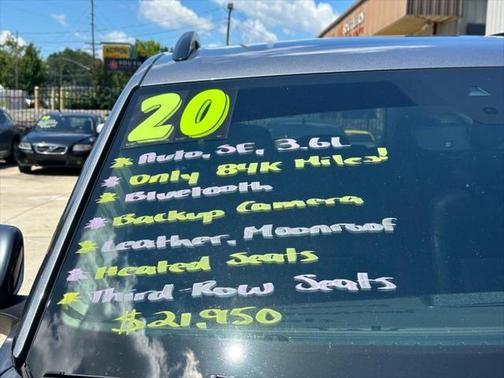 20
* Auto, SE, 3.6L
* Only 84K Miles!
* Bluetooth
* Backup Camera
* Leather, Moonroof
* Heated Seats
* Third Row Seats
$21,950